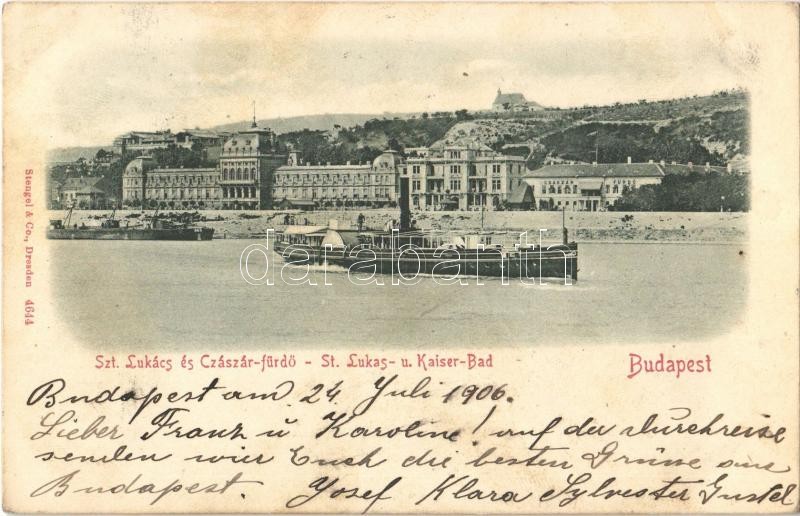 CSÁSZÁR FÜRDŐ
darabanth
Stengel & Co., Dresden 4644
Szt. Lukács és Czászár-fürdö - St. Lukas- u. Kaiser-Bad
Budapest
Budapest am 24 Juli 1906.
Lieber Franz u Karoline! auf der Durchreise
senden wier Euch die besten Grüsse aus
Budapest. Josef Klara Sylvester Gustel